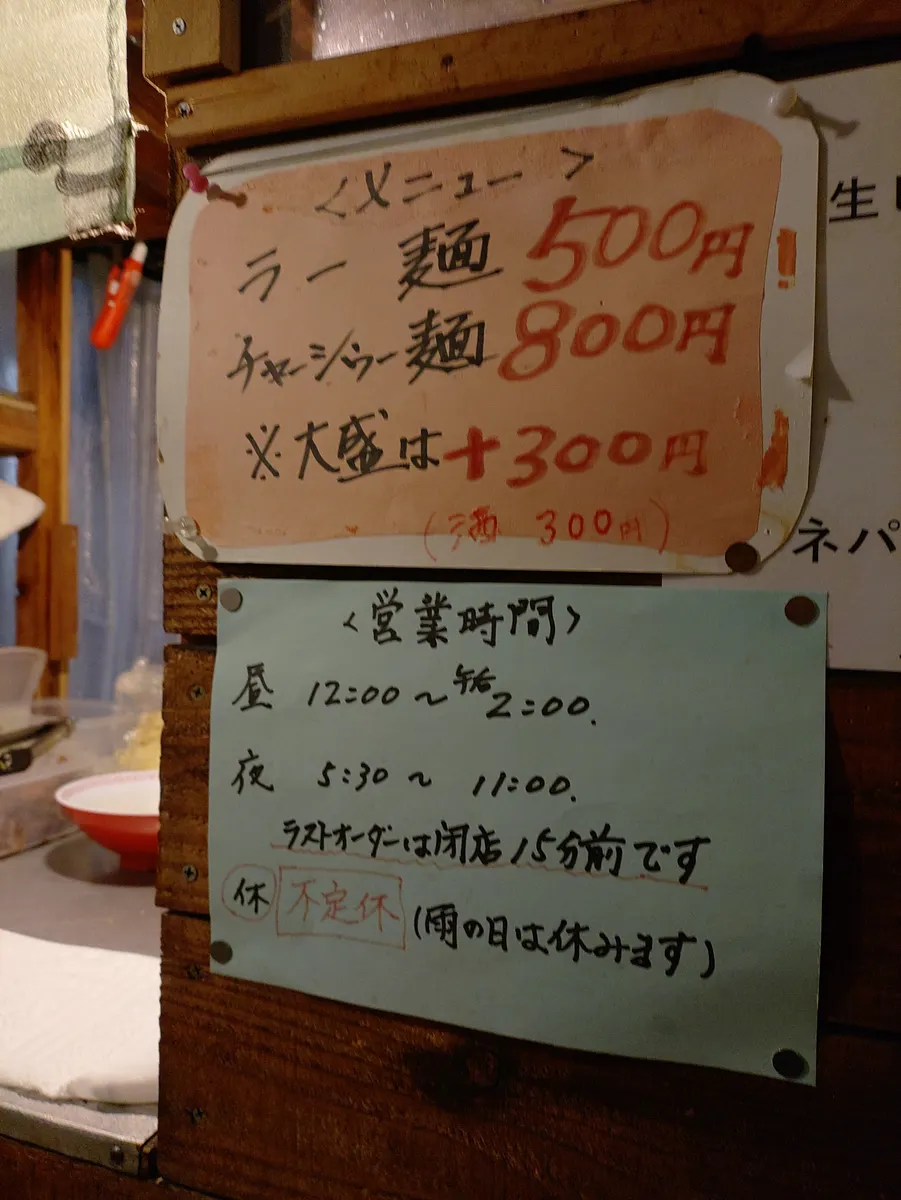 <メニュー>
ラー麺 500円
チャーシュー麺 800円
※大盛は+300円
(酒 300円)
生
ネパ
<営業時間>
昼 12:00〜午后2:00.
夜 5:30〜11:00.
ラストオーダーは閉店15分前です
休 不定休 (雨の日は休みます)